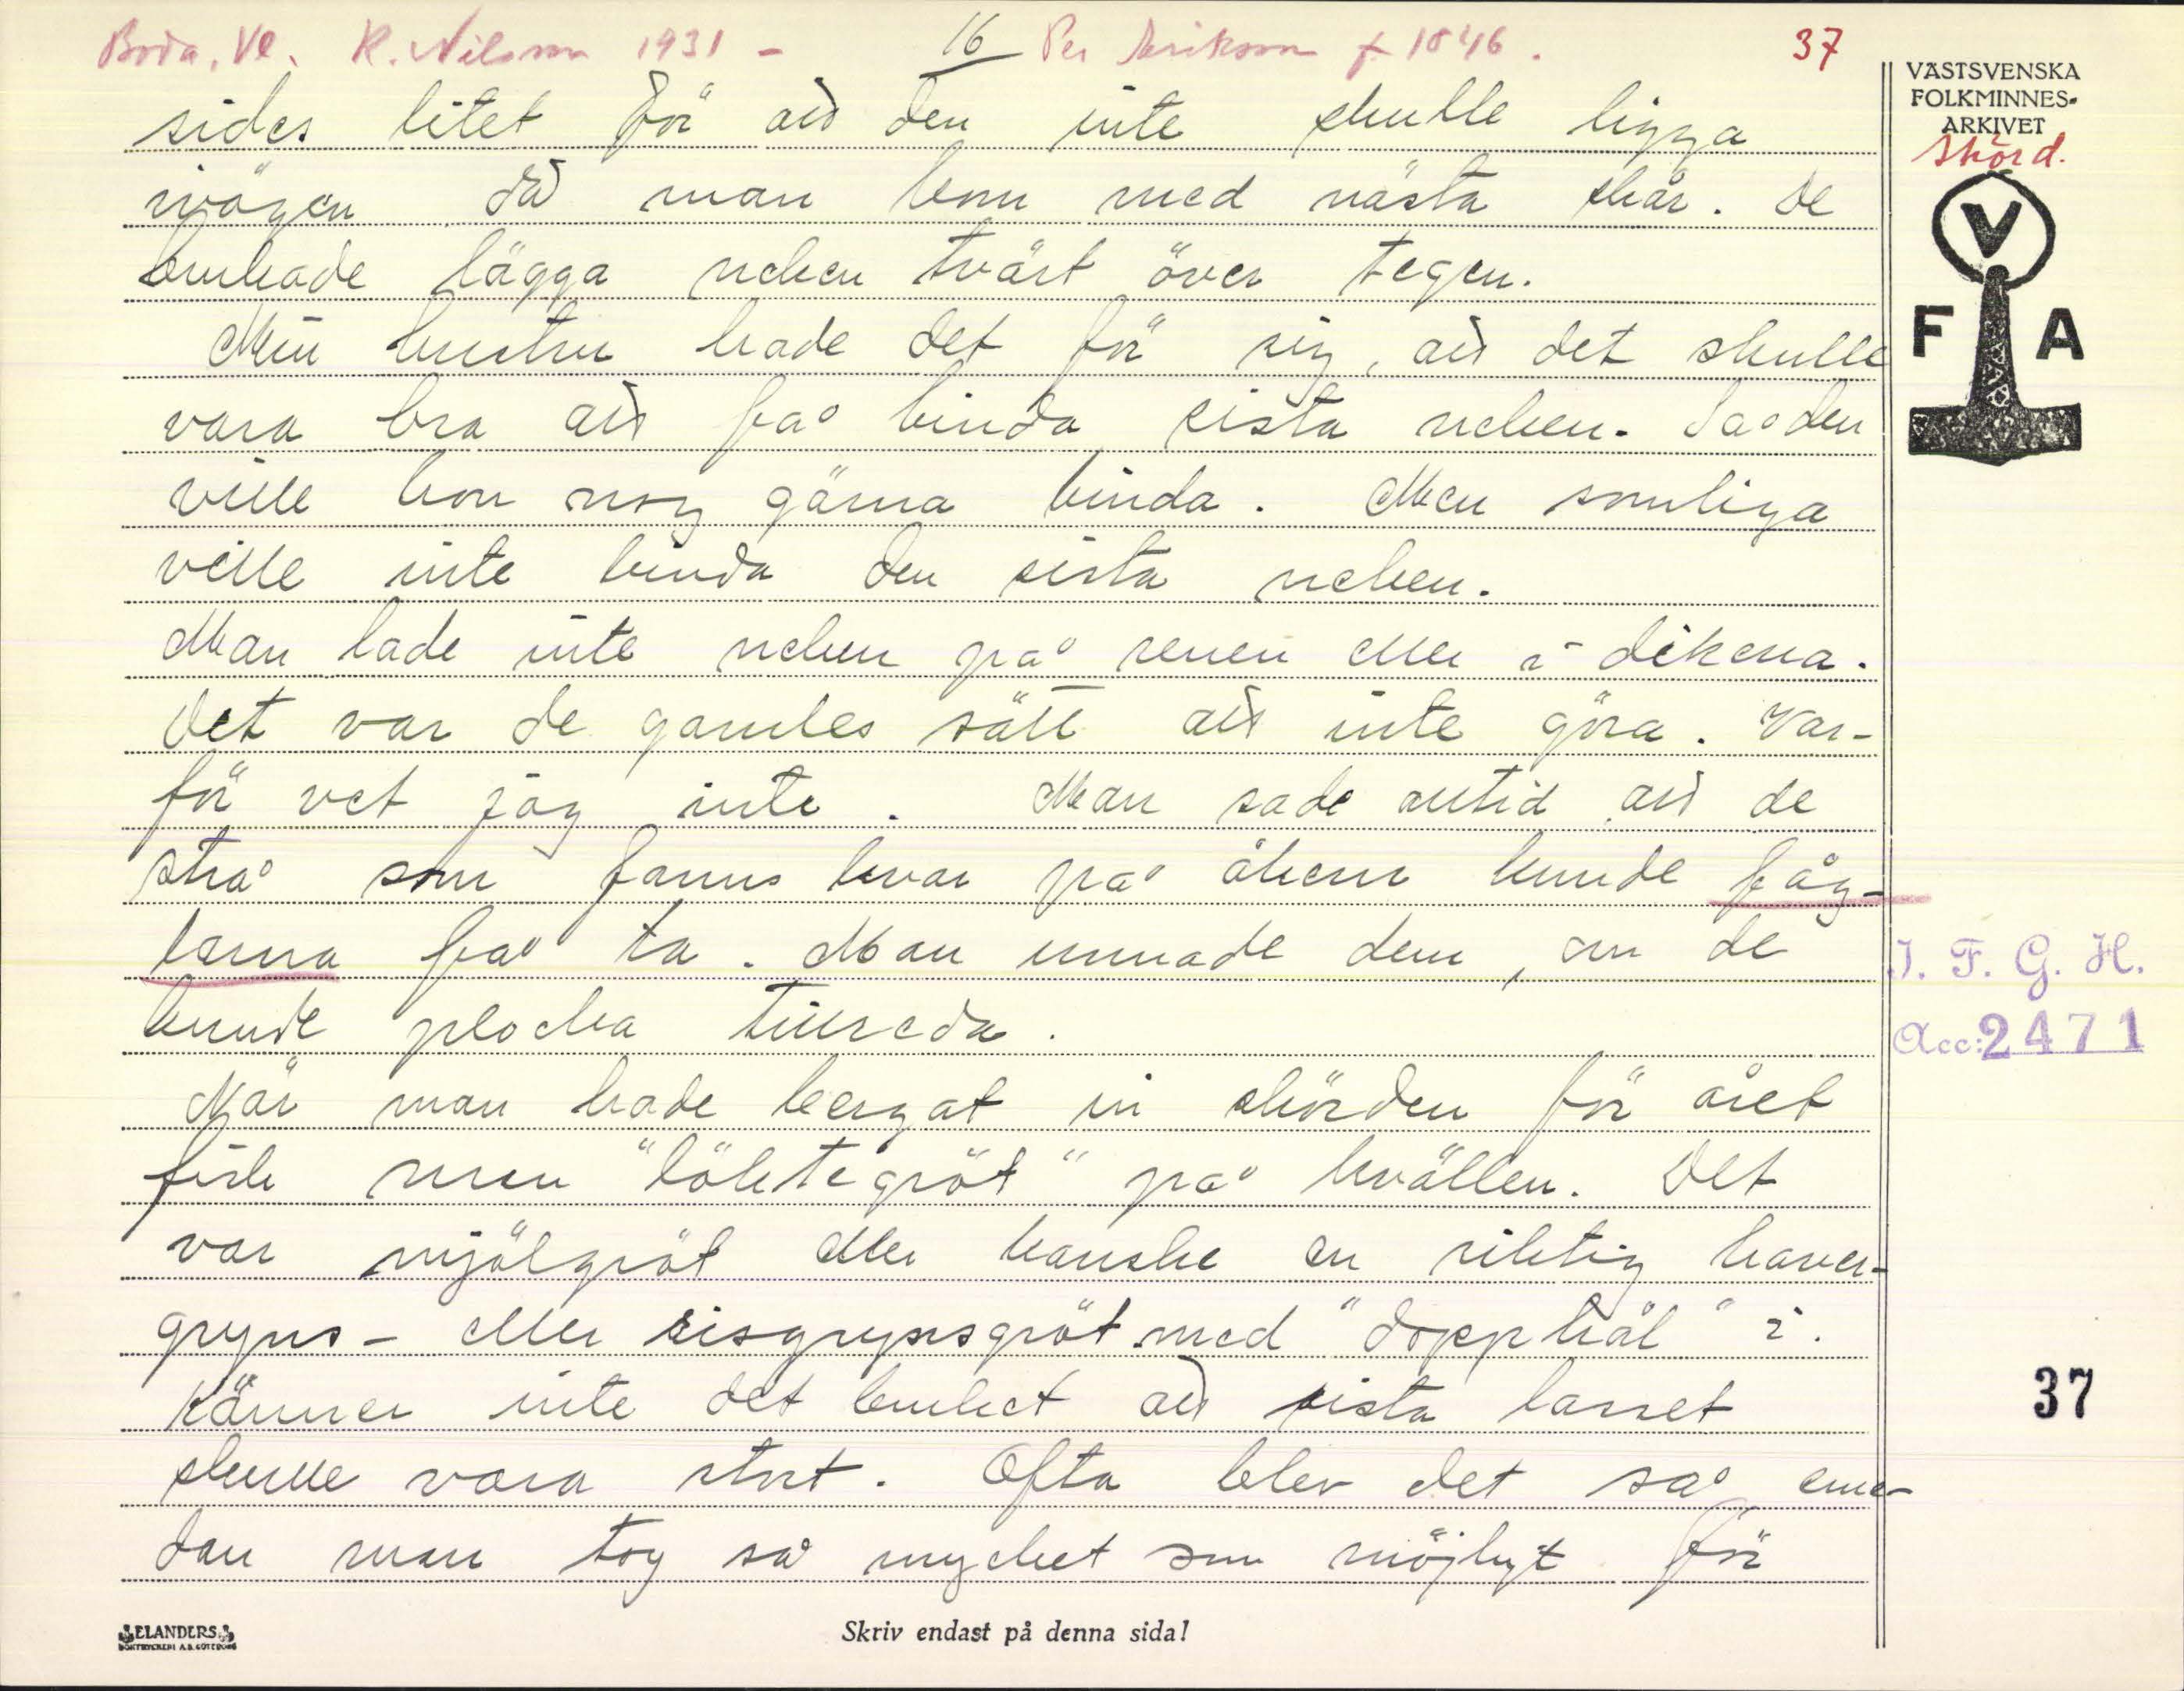 Boda, Vl. R. Nilsson 1931 - 16 Per Eriksson f. 1846. 37
VÄSTSVENSKA
FOLKMINNES-
ARKIVET
Skörd.
V
F A
sides litet för att den inte skulle ligga
ivägen då man kom med nästa skår. De
brukade lägga neken tvärt över tegen.
Min hustru hade det för sig, att det skulle
vara bra att få binda sista neken. Så den
ville hon nog gärna binda. Men somliga
ville inte binda den sista neken.
Man lade inte neken på renen eller i dikena.
Det var de gamles sätt att inte göra. Var-
för vet jag inte. Man sade alltid att de
strå som fanns kvar på åkern kunde fåg-
larna få ta. Man unnade dem, om de
kunde plocka tillreda.
När man hade bergat in skörden för året
fick man "löktegröt" på kvällen. Det
var mjölgröt eller kanske en riktig haver-
gryns- eller risgrynsgröt med "dopphål" i.
Känner inte det bruket att sista lasset
skulle vara stort. Ofta blev det så eme-
dan man tog så mycket som möjligt för
I. F. G. H.
Acc: 2471
37
ELANDERS
BOKTRYCKERI A.B. GÖTEBORG
Skriv endast på denna sida!